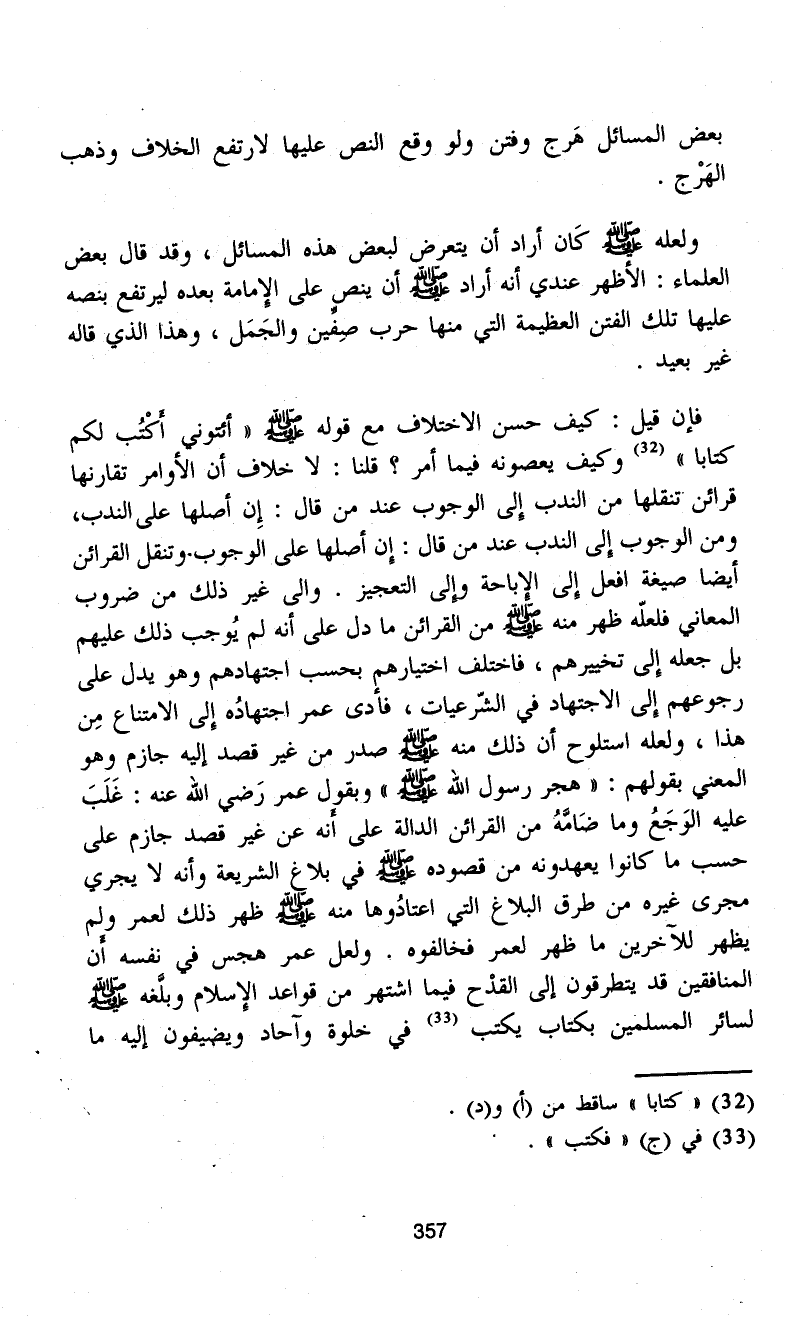 بعض المسائل هَرج وفتن ولو وقع النص عليها لارتفع الخلاف وذهب
الهَرْج .
ولعله ﷺ كَان أراد أن يتعرض لبعض هذه المسائل ، وقد قال بعض
العلماء : الأظهر عندي أنه أراد ﷺ أن ينص على الإمامة بعده ليرتفع بنصه
عليها تلك الفتن العظيمة التي منها حرب صِفِّين والجَمَل ، وهذا الذي قاله
غير بعيد .
فإن قيل : كيف حسن الاختلاف مع قوله ﷺ « أئتوني أَكْتُب لكم
كتابا » (32) وكيف يعصونه فيما أمر ؟ قلنا : لا خلاف أن الأوامر تقارنها
قرائن تنقلها من الندب إلى الوجوب عند من قال : إن أصلها على الندب،
ومن الوجوب إلى الندب عند من قال : إن أصلها على الوجوب.وتنقل القرائن
أيضا صيغة افعل إلى الإباحة وإلى التعجيز . والى غير ذلك من ضروب
المعاني فلعلّه ظهر منه ﷺ من القرائن ما دل على أنه لم يُوجب ذلك عليهم
بل جعله إلى تخييرهم ، فاختلف اختيارهم بحسب اجتهادهم وهو يدل على
رجوعهم إلى الاجتهاد في الشّرعيات ، فأدى عمر اجتهادُه إلى الامتناع مِن
هذا ، ولعله استلوح أن ذلك منه ﷺ صدر من غير قصد إليه جازم وهو
المعني بقولهم : « هجر رسول الله ﷺ » وبقول عمر رَضي الله عنه : غَلَبَ
عليه الوَجَعُ وما ضَامَّهُ من القرائن الدالة على أنه عن غير قصد جازم على
حسب ما كانوا يعهدونه من قصوده ﷺ في بلاغ الشريعة وأنه لا يجري
مجرى غيره من طرق البلاغ التي اعتادُوها منه ﷺ ظهر ذلك لعمر ولم
يظهر للآخرين ما ظهر لعمر فخالفوه . ولعل عمر هجس في نفسه أَن
المنافقين قد يتطرقون إلى القدْح فيما اشتهر من قواعد الإسلام وبلَّغه ﷺ
لسائر المسلمين بكتاب يكتب (33) في خلوة وآحاد ويضيفون إليه ما
(32) « كتابا » ساقط من (أ) و(د) .
(33) في (ج) « فكتب » .
357